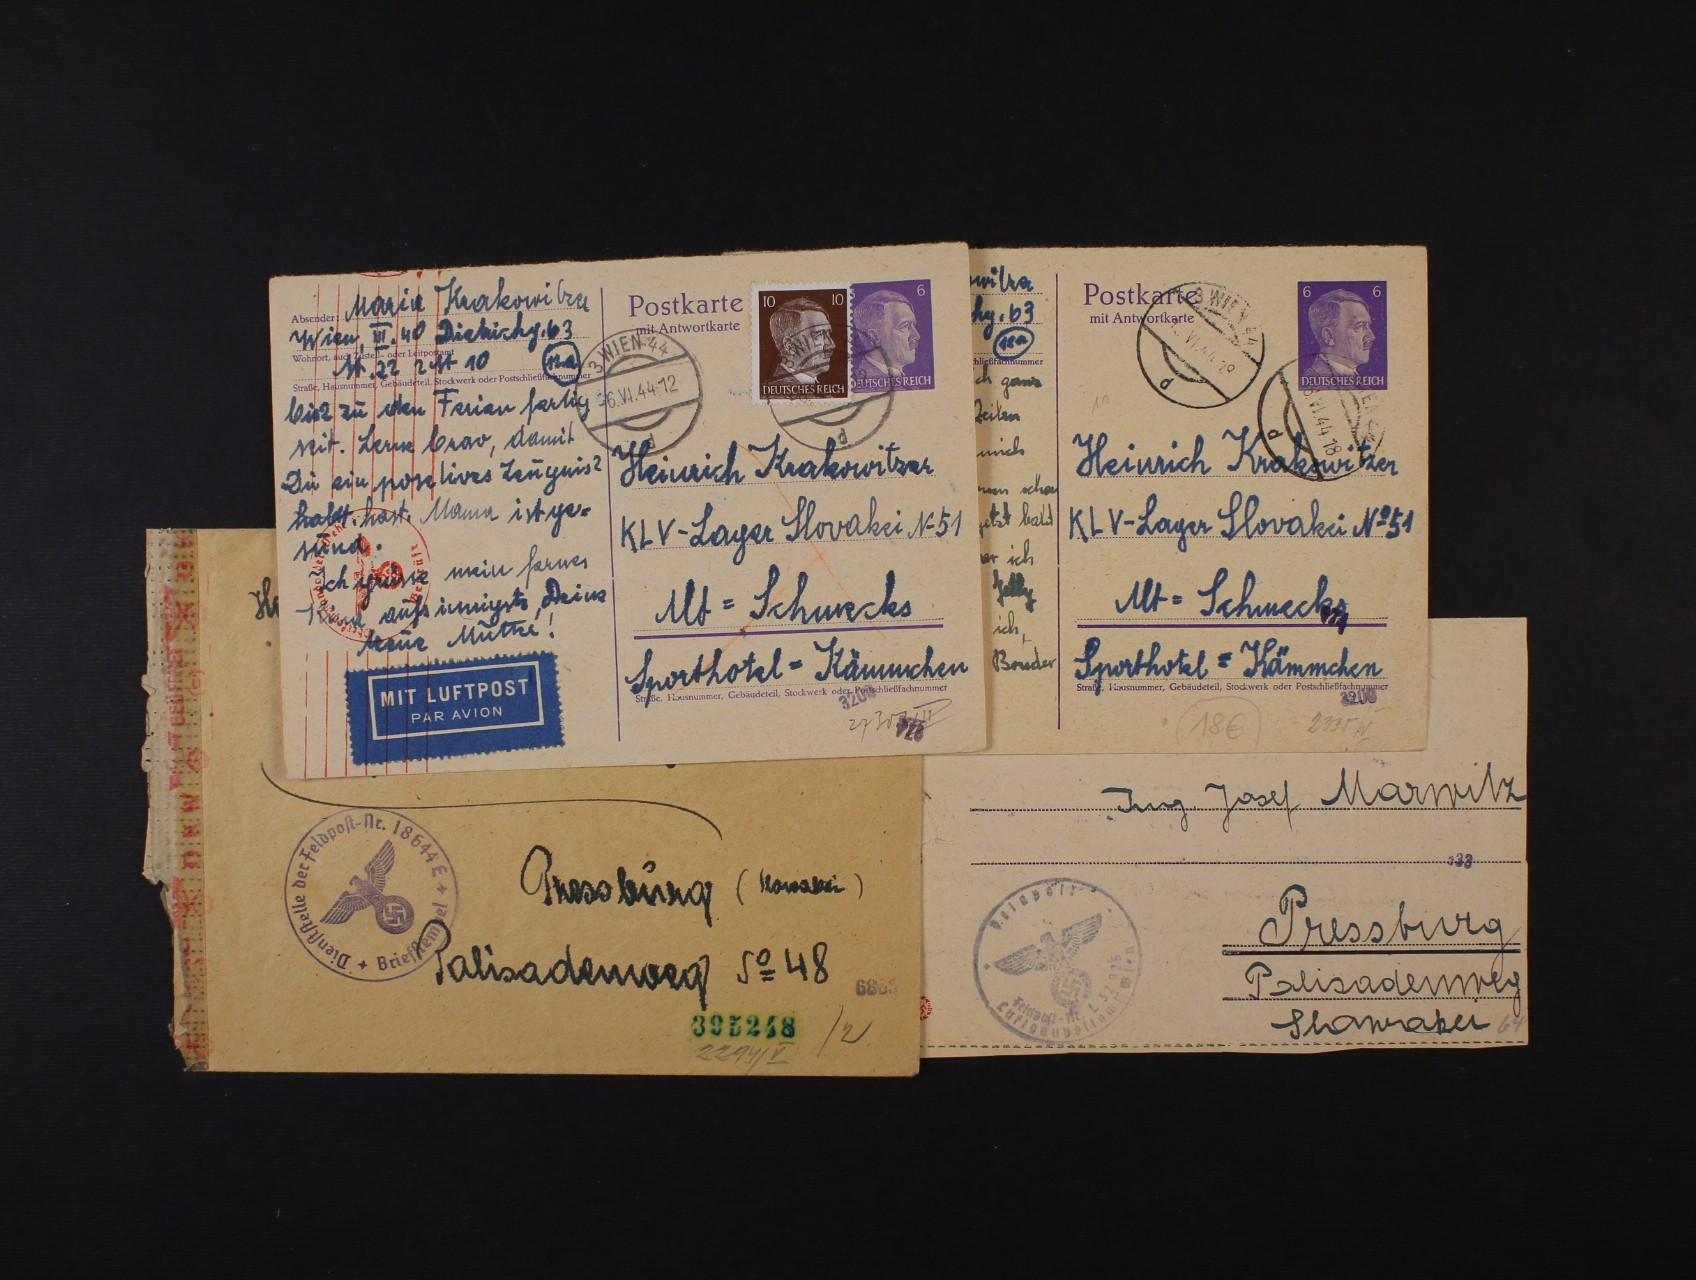 Absender: Maria Krakowitza
Wien, III. 40 Dietrichg. 63
Wohnort, auch Zustell- oder Leitpostamt
St. 22 2 St 10
12a
Straße, Hausnummer, Gebäudeteil, Stockwerk oder Postschließfachnummer
bist zu den Ferien fertig
seit. Lerne brav, damit
Du ein positives Zeugnis
hast. Mama ist ge=
sund.
Ich grüsse mein fernes
Kind aufs innigste, Deine
treue Mutti!
MIT LUFTPOST
PAR AVION
Postkarte
mit Antwortkarte
10 10
DEUTSCHES REICH
6
DEUTSCHES REICH
3 WIEN 44
-6.VI.44.12
d
WIEN
d
Heinrich Krakowitzer
KLV-Lager Slovakei No 51
Alt = Schmecks
Sporthotel = Kämmchen
Straße, Hausnummer, Gebäudeteil, Stockwerk oder Postschließfachnummer
3208
witza
hg. 63
12a
schließfachnummer
ch ganz
Zeiten
mich
schon
jetzt bald
ich
ich,
Bruder
Postkarte
mit Antwortkarte
6 6
DEUTSCHES REICH
3 WIEN 44
d
VI.44.18
d
Heinrich Krakowitzer
KLV-Lager Slovakei No 51
Alt = Schmecks
Sporthotel = Kämmchen
Straße, Hausnummer, Gebäudeteil, Stockwerk oder Postschließfachnummer
3208
18€
Dienststelle der Feldpost-Nr. 18644 E
Briefstempel
Pressburg
Palisadenweg No 48
6863
395248
/2
2294/V
Ing. Josef Marwitz
Pressburg
Palisadenweg
Slowakei
64
Feldpost
Feldpost-Nr. L 52936
Wien